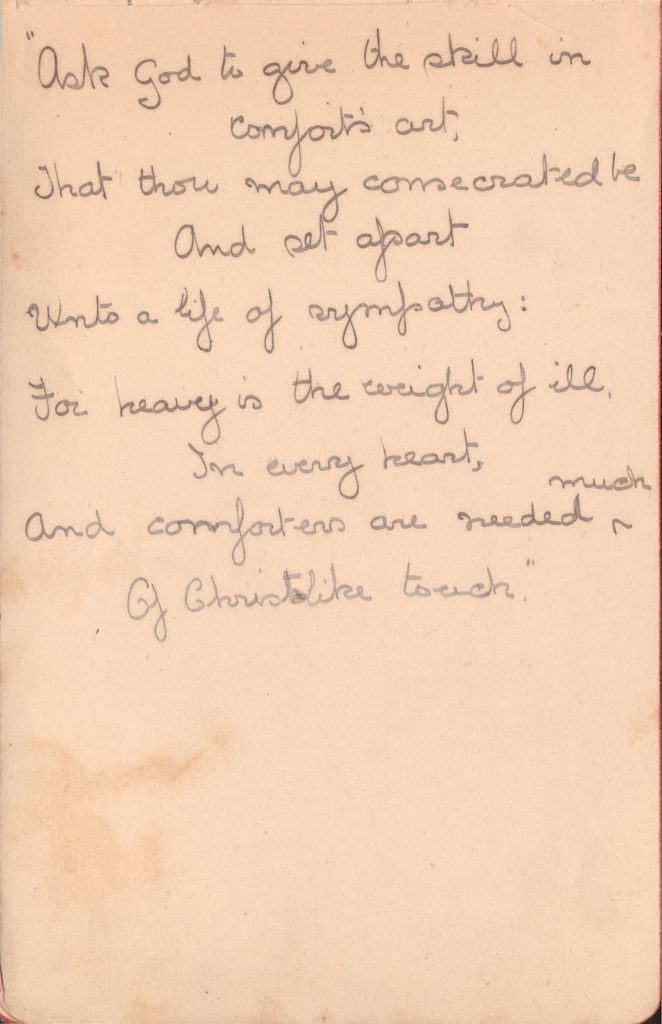 "Ask God to give the skill in
comfort's art,
That thou may consecrated be
And set apart
Unto a life of sympathy:
For heavy is the weight of ill,
In every heart,
much
And comforters are needed
Of Christlike touch."